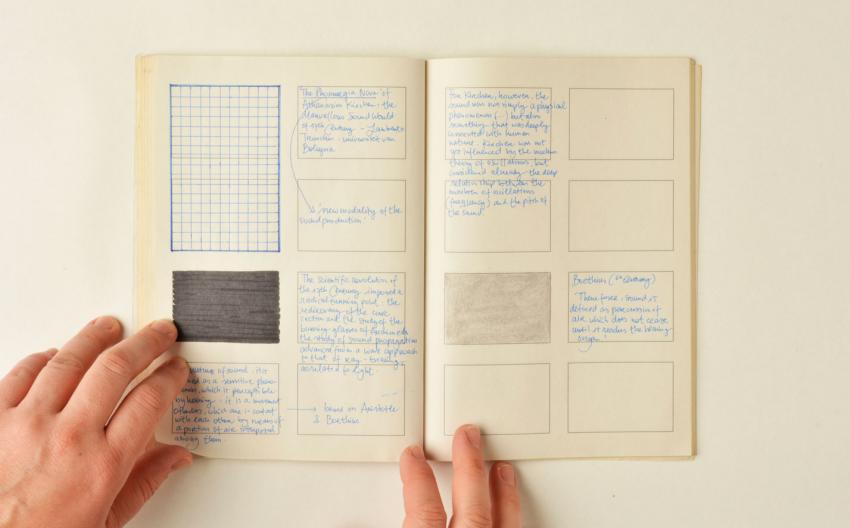 The Phonurgia Nova' of
Athanasius Kircher: the
Marvellous sound world
of 17th Century - Lamberto
Tronchin - universiteit van
Bologna
↳ 'new modality of the
sound production'
The scientific revolution of
the 17th Century imposed a
radical turning point - the
rediscovery of the conic
section and the study of the
burning glasses of Archimede
the study of sound propagation
advanced from a wave approach
to that of ray-tracing
assimilated to light.
nature of sound: it is
as a sensitive pheno-
which is perceptible
by hearing - it is a movement
of bodies, which are in contact
with each other by means of
a portion of air interposed
among them
→ based on Aristotle
& Boethius
For Kircher, however, the
sound was not simply a physical
phenomenon (...) but also
something that was deeply
connected with human
nature. Kircher was not
yet influenced by the modern
theory of oscillations, but
considered already the deep
relationship between the
number of oscillations
(frequency) and the pitch of
the sound
Boethius (6e century)
'Therefore, sound is
defined as percussion of
air which does not cease
until it reaches the hearing
organ'